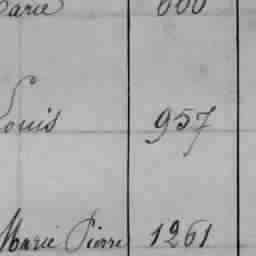 Marie 600
Louis 957
Marie Pierre 1261